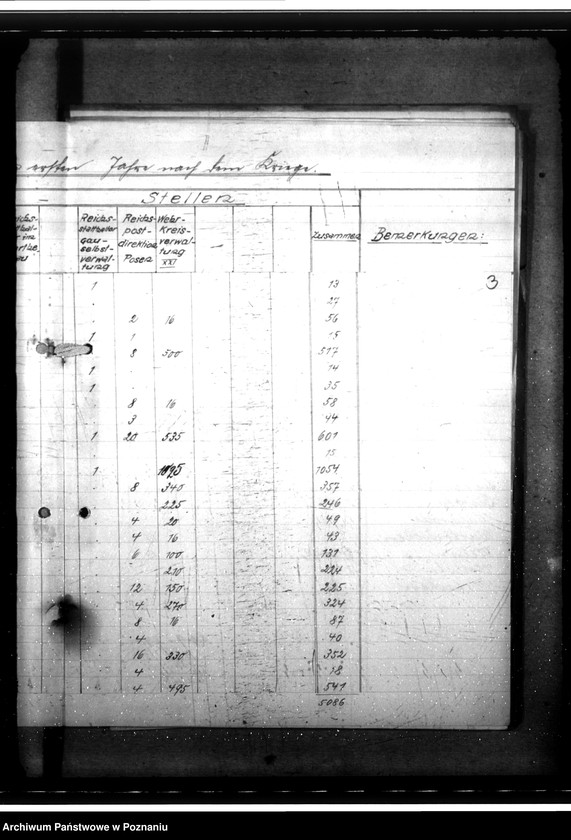 ersten Jahre nach dem Kriege.
Stellen
Reichs-
statthalter
gau-
selbst-
verwal-
tung
Reichs-
post-
direktion
Posen
Wehr-
Kreis-
verwal-
tung
XXI
Zusammen
Bemerkungen:
3
1 13
. 27
. 2 16 56
1 1 . 15
. 8 500 517
1 . 14
1 . 35
8 16 58
3 44
1 20 535 601
15
1 1054
. 8 340 357
. 225 246
4 20 49
4 16 43
6 100 131
210 224
12 150 225
4 270 324
8 16 87
4 40
16 330 352
4 18
4 495 541
5086
Archiwum Państwowe w Poznaniu